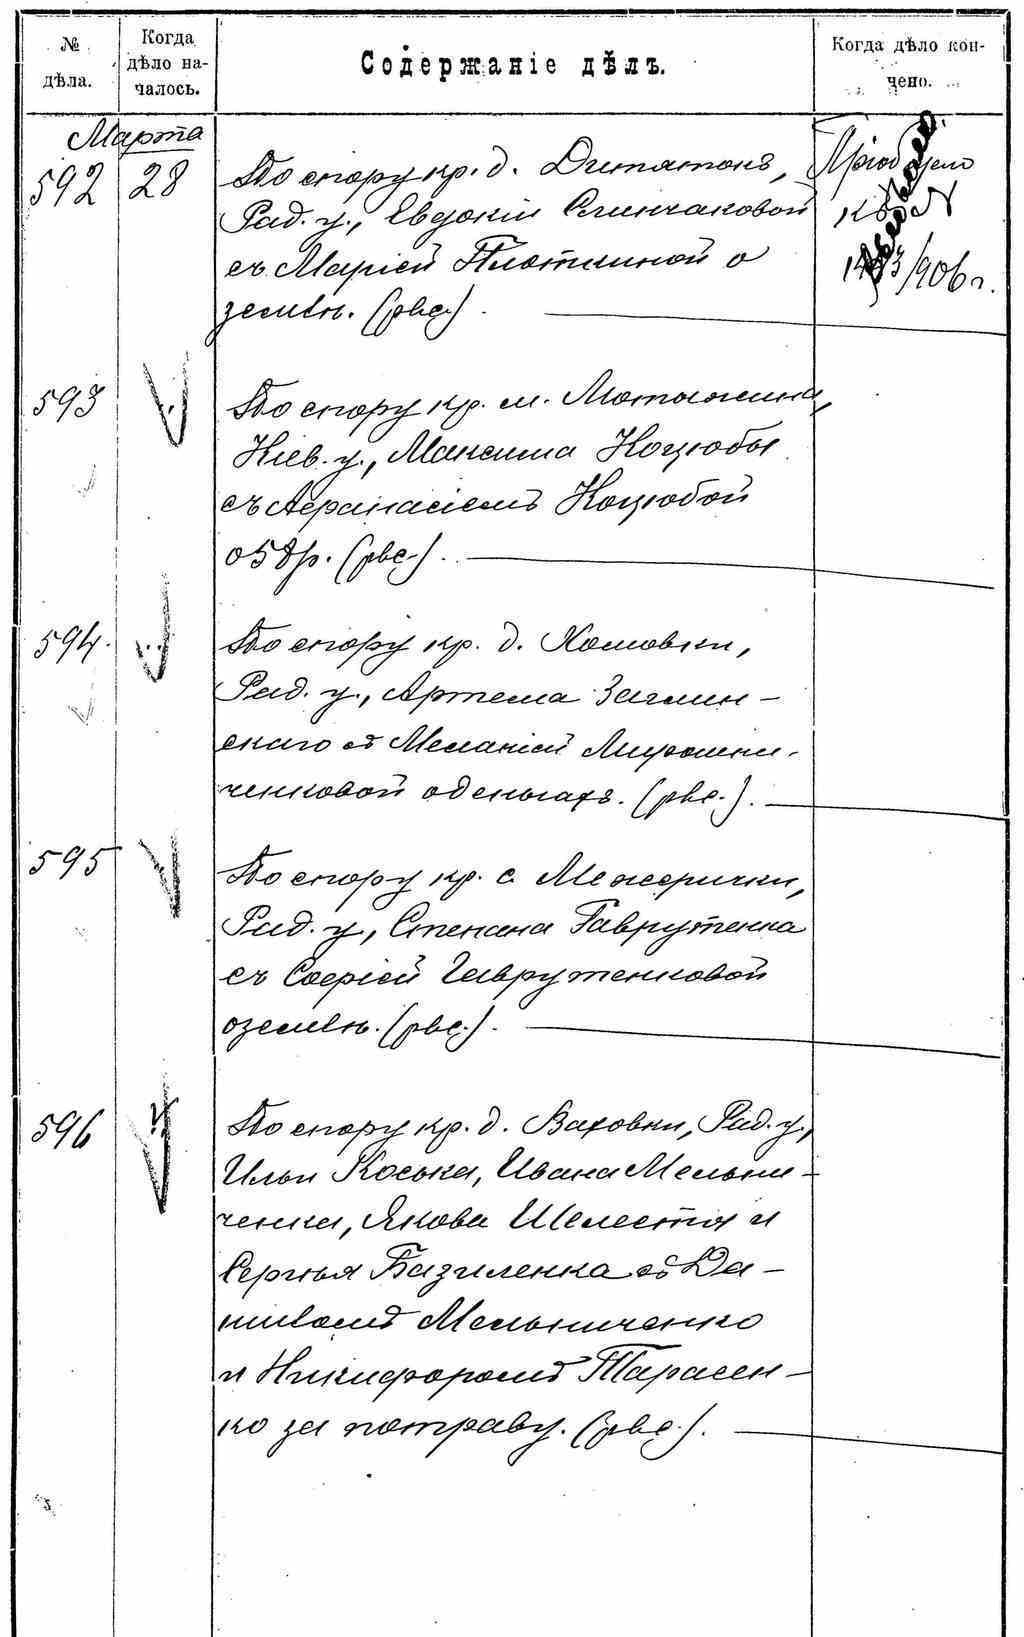 № дѣла.
Когда дѣло на-
чалось.
Содержаніе дѣлъ.
Когда дѣло кон-
чено.
Марта
592
28
По спору кр. д. Дитятокъ,
Рад. у., Евдокіи Слинчаковой
съ Маріей Плоткиной о
землѣ. (рвс.)
Пріобщено
къ №
/906 г.
593
По спору кр. м. Мотыжина,
Кіев. у., Максима Коцюбы
съ Афанасіемъ Коцюбой
(рвс.).
594.
По спору кр. д. Хомовки,
Рад. у., Артема Заглин-
скаго съ Меланіей Мирошни-
ченковой о деньгахъ. (рвс.).
595
По спору кр. с. Межерички,
Рад. у., Степана Гаврутенка
съ Софіей Гаврутенковой
о землѣ. (рвс.).
596
По спору кр. д. Ваховки, Рад. у.,
Ильи Коська, Ивана Мельни-
ченка, Якова Шелеста и
Сергѣя Базиленка съ Да-
ниломъ Мельниченко
и Никифоромъ Тарасен-
ко за потраву. (рвс.).